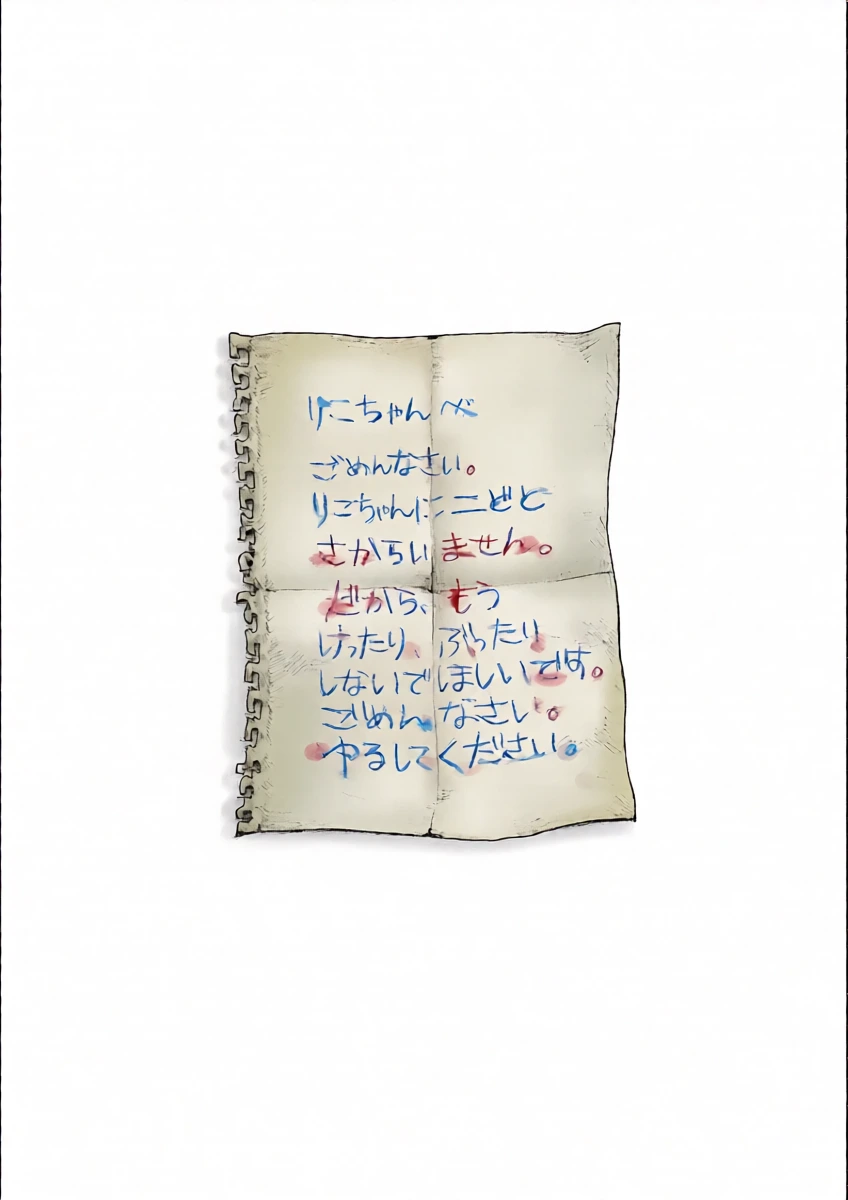 りこちゃんへ
ごめんなさい。
りこちゃんにニどと
さからいません。
だから、もう
けったり、ぶったり
しないでほしいです。
ごめんなさい。
ゆるしてください。